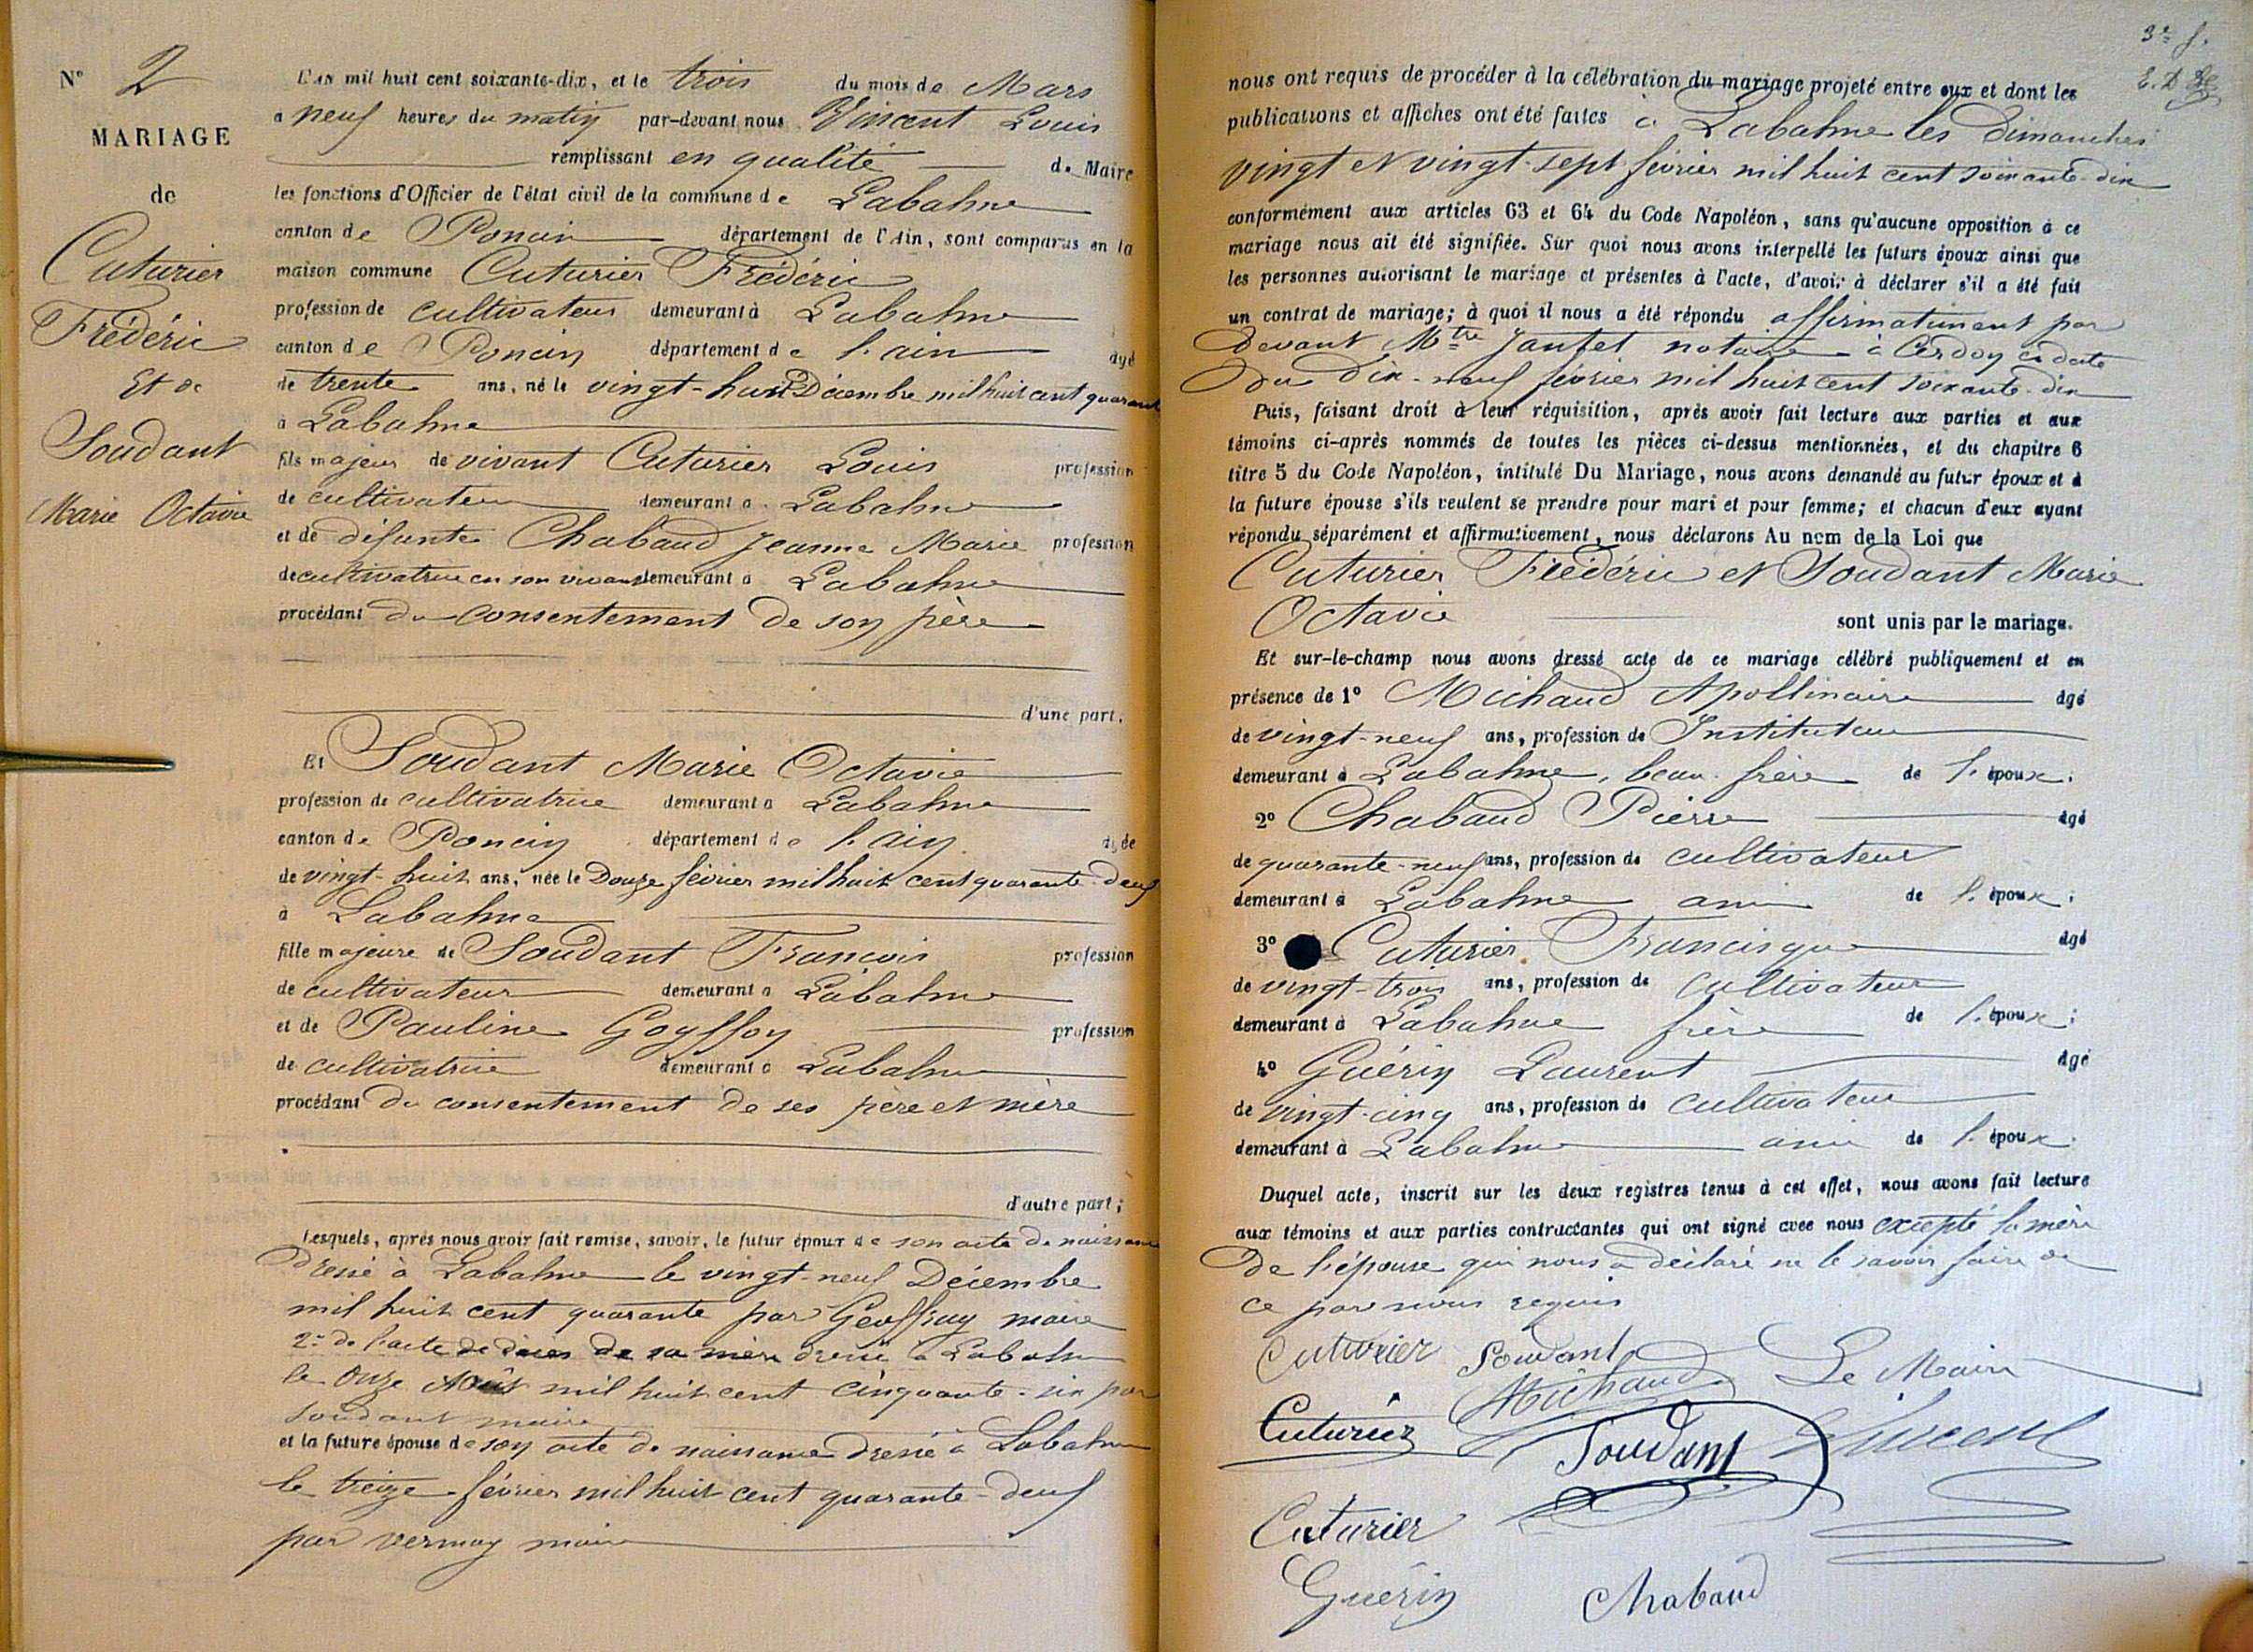 N° 2
MARIAGE
de
Cuturier
Frédéric
Et de
Soudant
Marie Octavie
L'an mil huit cent soixante-dix, et le trois du mois de Mars
a neuf heures du matin par-devant nous Vincent Louis
remplissant en qualité de Maire
les fonctions d'Officier de l'état civil de la commune de Labalme
canton de Poncin département de l'Ain, sont comparus en la
maison commune Cuturier Frédéric
profession de cultivateur demeurant à Labalme
canton de Poncin département de l'ain agé
de trente ans, né le vingt-huit Décembre mil huit cent quarante
à Labalme
fils majeur de vivant Cuturier Louis profession
de cultivateur demeurant a Labalme
et de défunte Chabaud Jeanne Marie profession
de cultivatrice en son vivant demeurant a Labalme
procédant du consentement de son père
d'une part.
Et Soudant Marie Octavie
profession de cultivatrice demeurant a Labalme
canton de Poncin département de l'ain agée
de vingt-huit ans, née le Douze février mil huit cent quarante-deux
à Labalme
fille majeure de Soudant François profession
de cultivateur demeurant a Labalme
et de Pauline Goyffon profession
de cultivatrice demeurant a Labalme
procédant du consentement de ses père et mère
d'autre part;
Lesquels, après nous avoir fait remise, savoir, le futur époux de son acte de naissance
Dressé à Labalme le vingt-neuf Décembre
mil huit cent quarante par Geoffray maire
2° de l'acte de décès de sa mère dressé à Labalme
le Onze Août mil huit cent cinquante-six par
Soudant maire
et la future épouse de son acte de naissance Dressé à Labalme
le treize février mil huit cent quarante-deux
par maire
3e f.
nous ont requis de procéder à la célébration du mariage projeté entre eux et dont les
publications et affiches ont été faites à Labalme les Dimanches
vingt et vingt-sept février mil huit cent soixante-dix
conformément aux articles 63 et 64 du Code Napoléon, sans qu'aucune opposition à ce
mariage nous ait été signifiée. Sur quoi nous avons interpellé les futurs époux ainsi que
les personnes autorisant le mariage et présentes à l'acte, d'avoir à déclarer s'il a été fait
un contrat de mariage; à quoi il nous a été répondu affirmativement par
Devant Mtre Jantet notaire à Cerdon en date
Du Dix-neuf février mil huit cent soixante-dix
Puis, faisant droit à leur réquisition, après avoir fait lecture aux parties et aux
témoins ci-après nommés de toutes les pièces ci-dessus mentionnées, et du chapitre 6
titre 5 du Code Napoléon, intitulé Du Mariage, nous avons demandé au futur époux et à
la future épouse s'ils veulent se prendre pour mari et pour femme; et chacun d'eux ayant
répondu séparément et affirmativement, nous déclarons Au nom de la Loi que
Cuturier Frédéric et Soudant Marie
Octavie sont unis par le mariage.
Et sur-le-champ nous avons dressé acte de ce mariage célébré publiquement et en
présence de 1° Michaud Apollinaire agé
de vingt-neuf ans, profession de Instituteur
demeurant à Labalme, beau-frère de l'époux;
2° Chabaud Pierre agé
de quarante-neuf ans, profession de cultivateur
demeurant à Labalme ami de l'époux;
3° Cuturier Francisque agé
de vingt-trois ans, profession de cultivateur
demeurant à Labalme frère de l'époux;
4° Guérin Laurent agé
de vingt-cinq ans, profession de cultivateur
demeurant à Labalme ami de l'époux.
Duquel acte, inscrit sur les deux registres tenus à cet effet, nous avons fait lecture
aux témoins et aux parties contractantes qui ont signé avec nous excepté la mère
De l'épouse qui nous a déclaré ne le savoir faire de
ce par nous requis
Cuturier Soudant Le Maire
Michaud
Cuturier Soudant Vincent
Cuturier
Guérin Chabaud